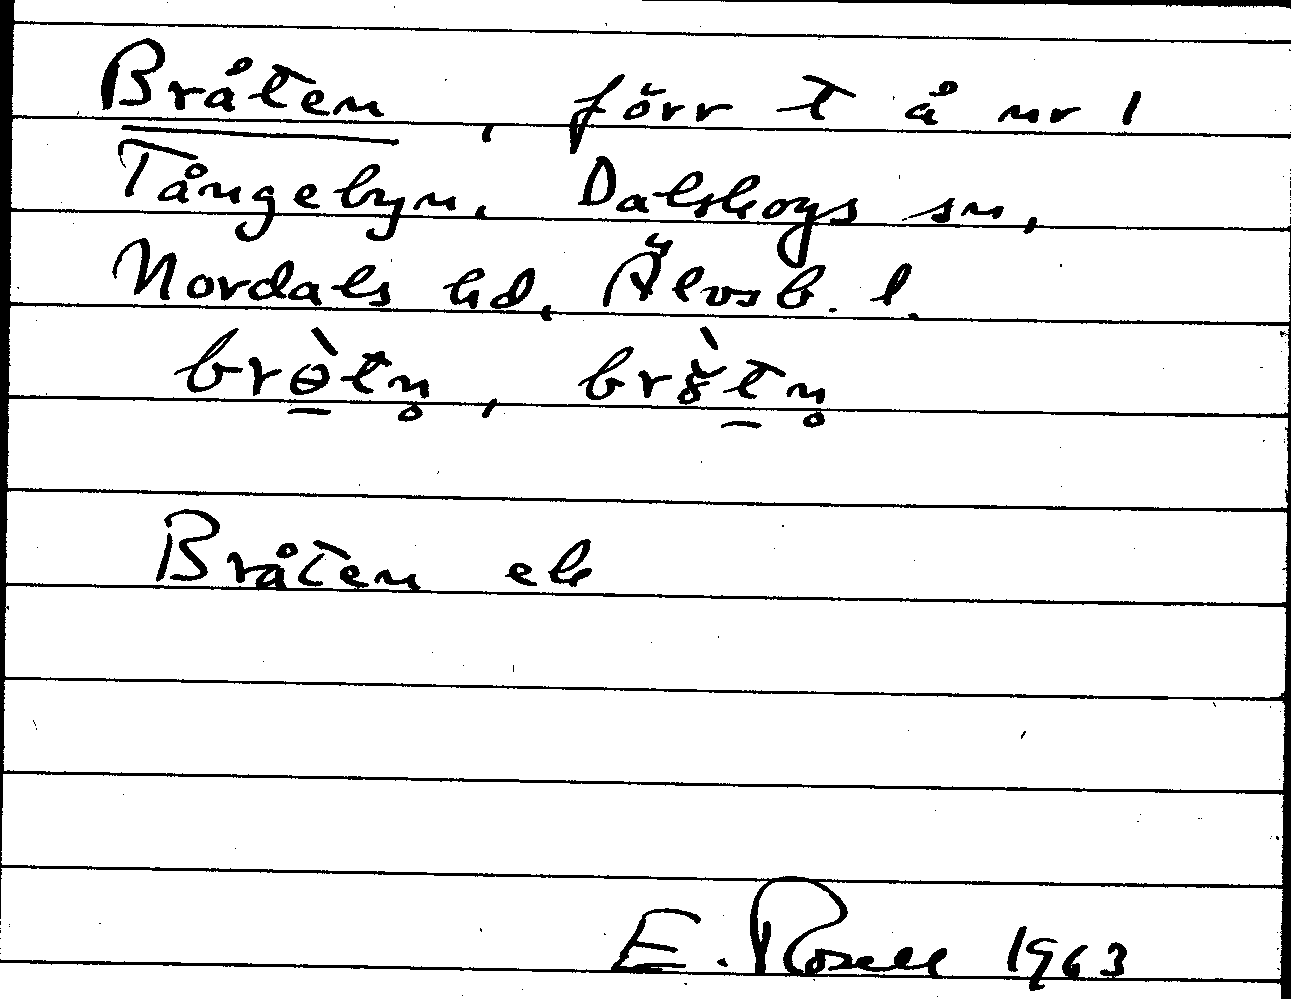 Bråten, förr t å nr 1
Tångebyn, Dalskogs sn,
Nordals hd, Älvsb. l.
brɵ̀tn̥, brò̆tn̥
Bråten ek
E. Rosell 1963